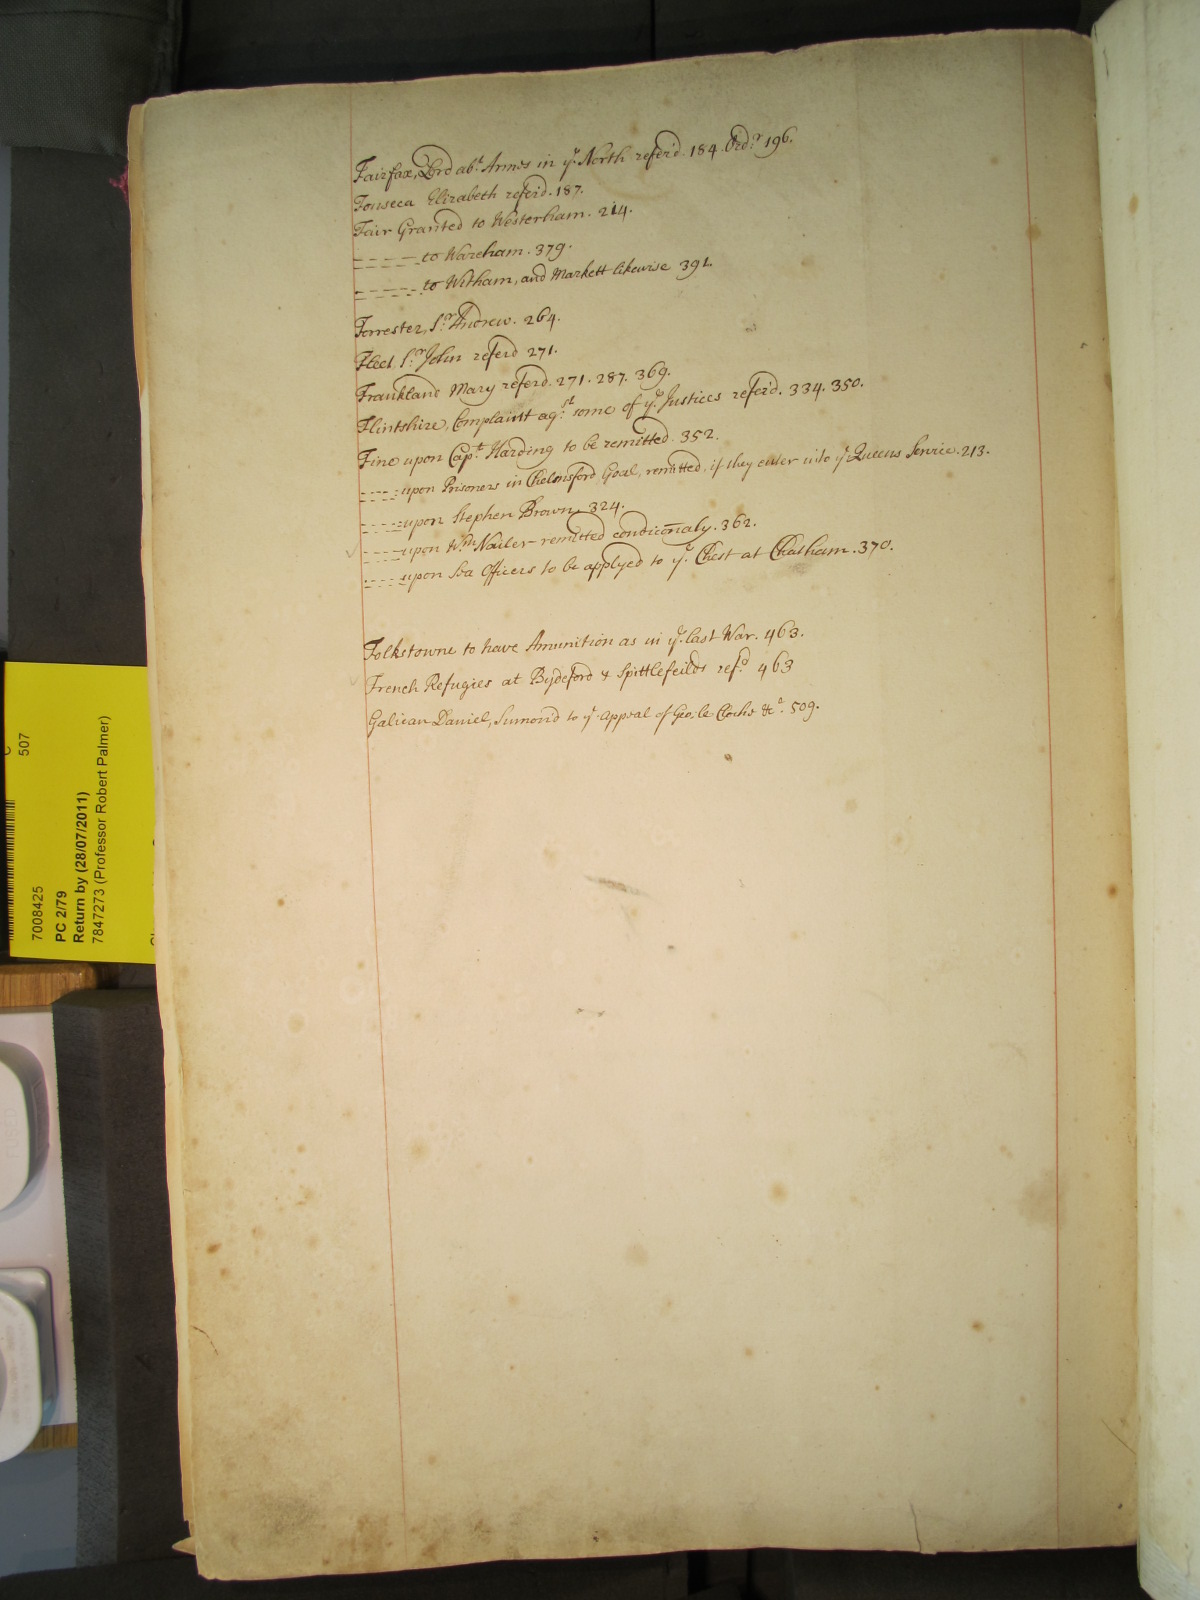 Fairfax, Lord abt. Armes in ye. North refer'd. 184. Ord.r 196.
Fonseca Elizabeth refer'd. 187.
Fair Granted to Westerham. 214.
----- to Wareham. 379.
----- to Witham, and Markett likewise 391.
Forrester, Sr. Andrew. 264.
Fleet, Sr. John referd 271.
Frankland Mary referd. 271. 287. 369.
Flintshire, Complaint agst. some of ye. Justices refer'd. 334. 350.
Fine upon Capt. Harding to be remitted. 352.
----- upon Prisoners in Chelmsford Goal, remitted, if they enter into ye Queens Service. 213.
----- upon Stephen Brown. 324.
----- upon Wm. Nailer remitted condiconaly. 362.
----- upon Sea Officers to be applyed to ye. Chest at Chatham. 370.
Folkstowne to have Amunition as in ye. last War. 463.
French Refugies at Bydeford & Spittlefeilds refd. 463
Galican Daniel, Sumon'd to ye. Appeal of &ca. 509.
507
7008425
PC 2/79
Return by (28/07/2011)
7847273 (Professor Robert Palmer)